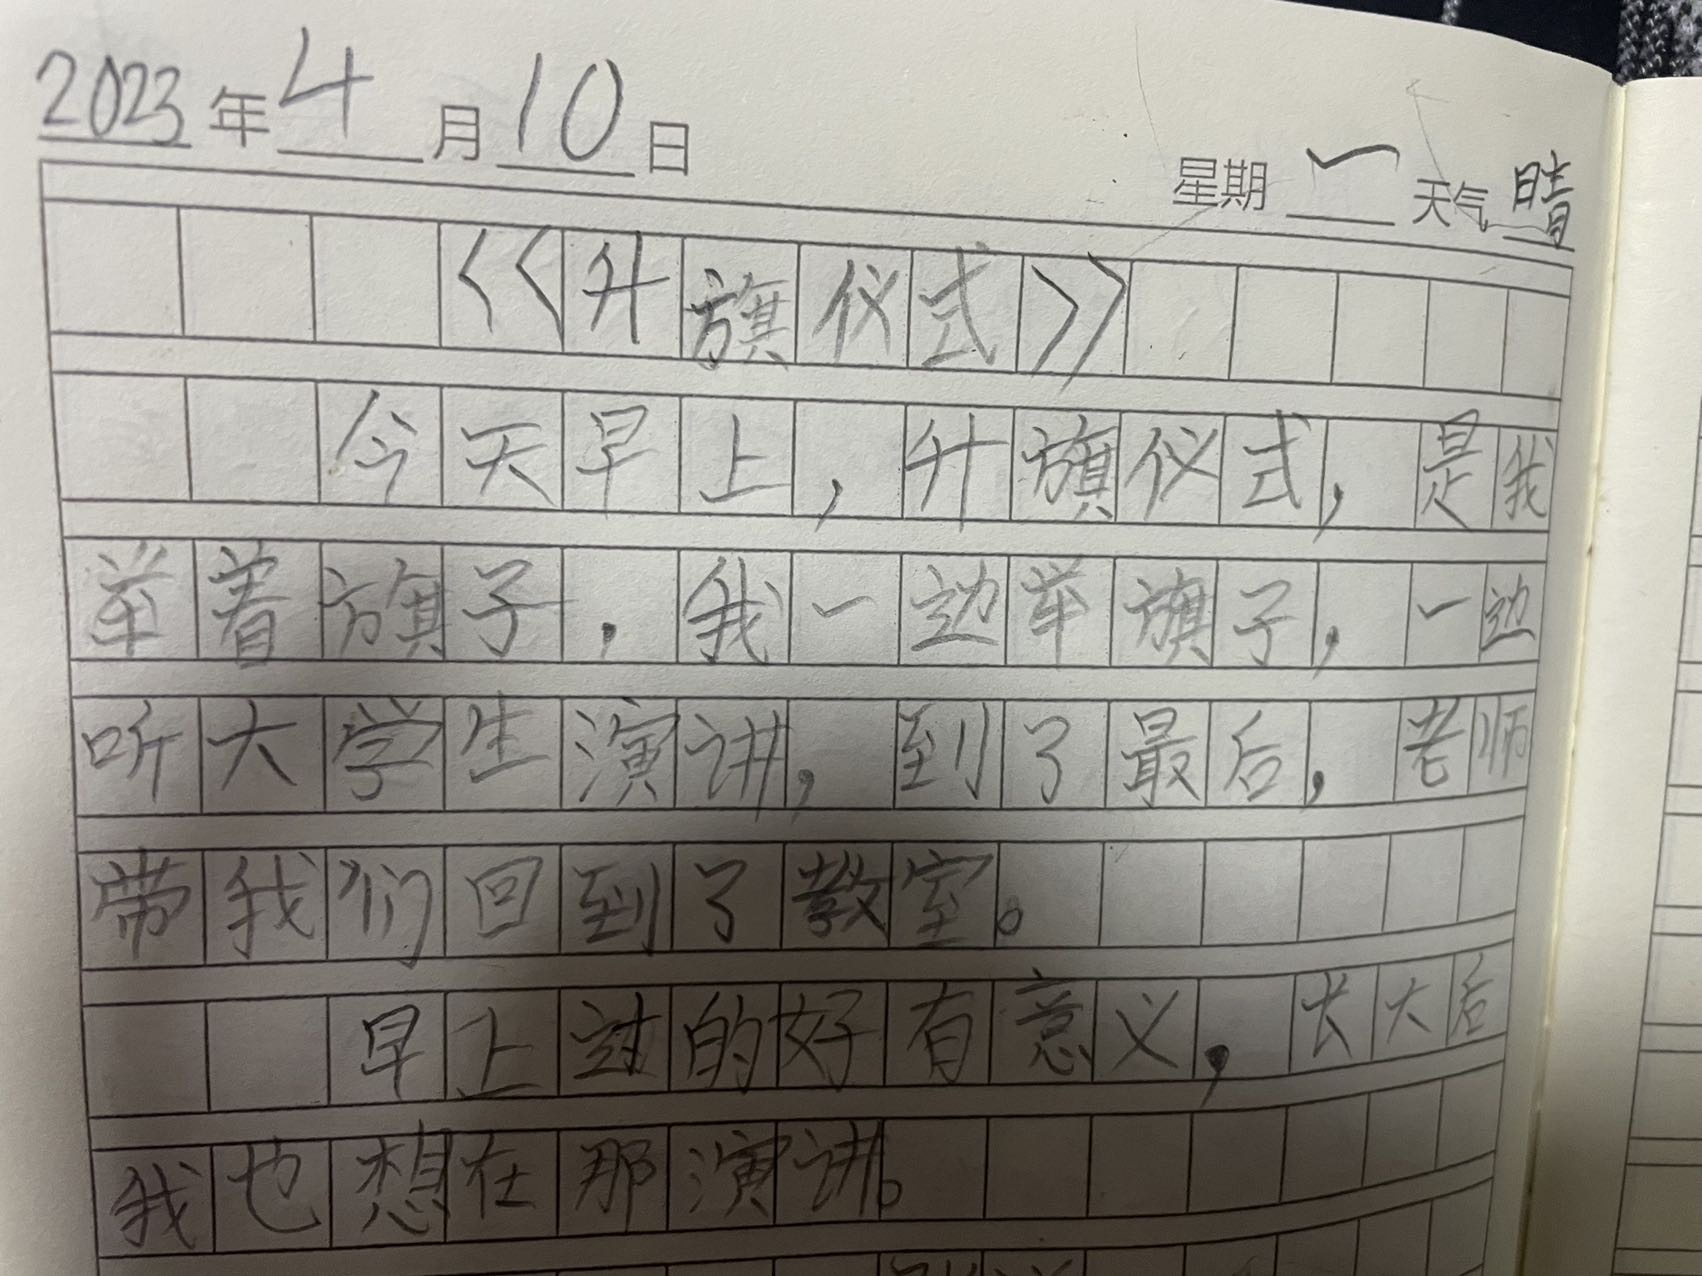 2023年4月10日 星期一 天气晴
《升旗仪式》
今天早上,升旗仪式,是我
举着旗子,我一边举旗子,一边
听大学生演讲,到了最后,老师
带我们回到了教室。
早上过的好有意义,长大后
我也想在那演讲。